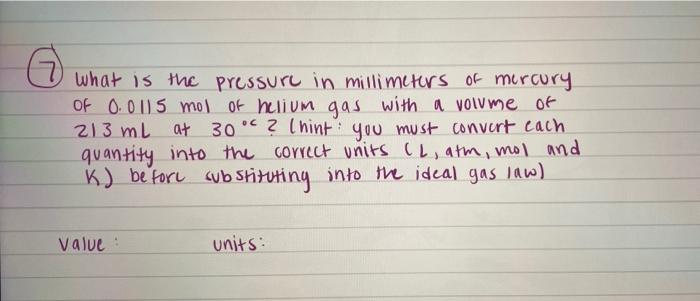 7 What is the pressure in millimeters of mercury
of 0.0115 mol of helium gas with a volume of
213 mL at 30 °C ? (hint: you must convert each
quantity into the correct units (L, atm, mol and
K) before substituting into the ideal gas law)
Value : units: